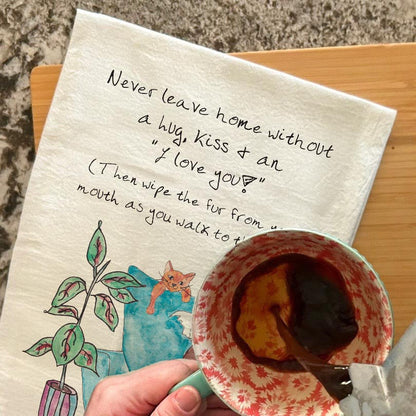 Never leave home without
a hug, kiss & an
"I love you!"
(Then wipe the fur from
mouth as you walk to